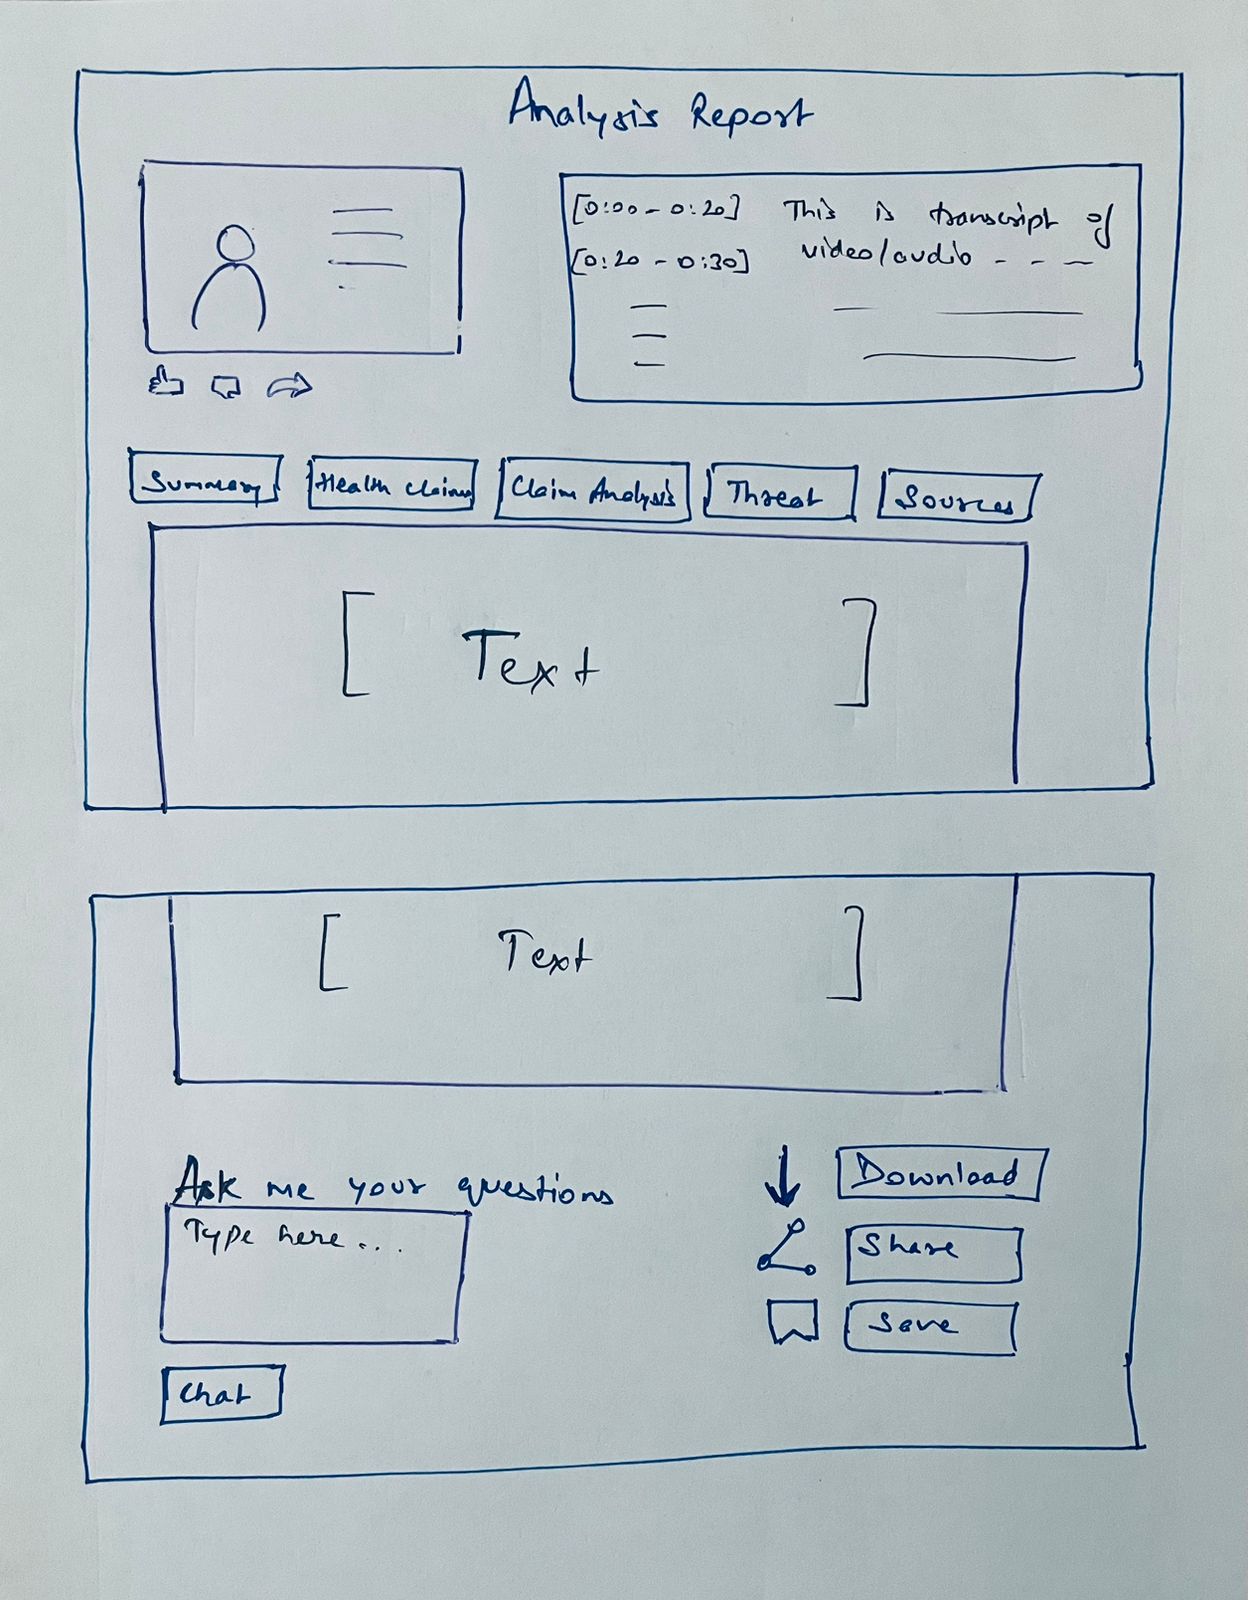 Analysis Report
[0:00 - 0:20] This is transcript of
[0:20 - 0:30] video/audio - - -
Summary Health claims Claim Analysis Threat Sources
[ Text ]
[ Text ]
Ask me your questions
Type here...
Chat
Download
Share
Save